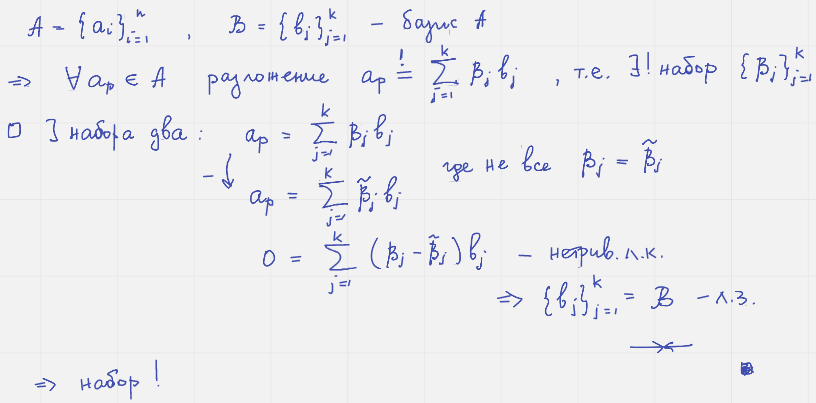 A = {a_i}_{i=1}^n , B = {b_j}_{j=1}^k – базис A
⇒ ∀ a_p ∈ A разложение a_p =^! ∑_{j=1}^k β_j b_j , т.е. ∃! набор {β_j}_{j=1}^k
□ ] набора два : a_p = ∑_{j=1}^k β_j b_j
где не все β_j = β̃_j
– ↓ a_p = ∑_{j=1}^k β̃_j b_j
0 = ∑_{j=1}^k (β_j – β̃_j) b_j – нетрив. л.к.
⇒ {b_j}_{j=1}^k = B – л.з.
⇒ набор !